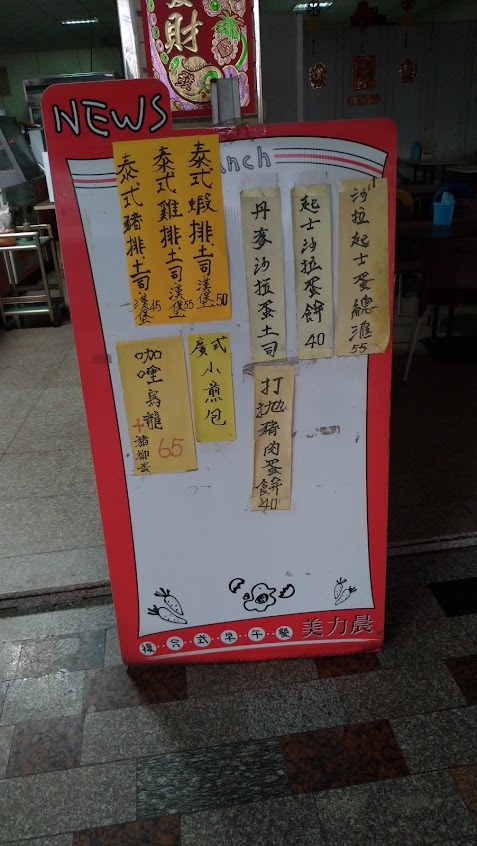 財
NEWS
unch
泰式蝦排土司漢堡50
泰式雞排土司漢堡55
泰式豬排土司漢堡45
沙拉起士蛋總滙55
起士沙拉蛋餅40
丹麥沙拉蛋土司
廣式小煎包
咖哩烏龍
+豬柳蛋
65
打拋豬肉蛋餅40
複合式早午餐
美力晨